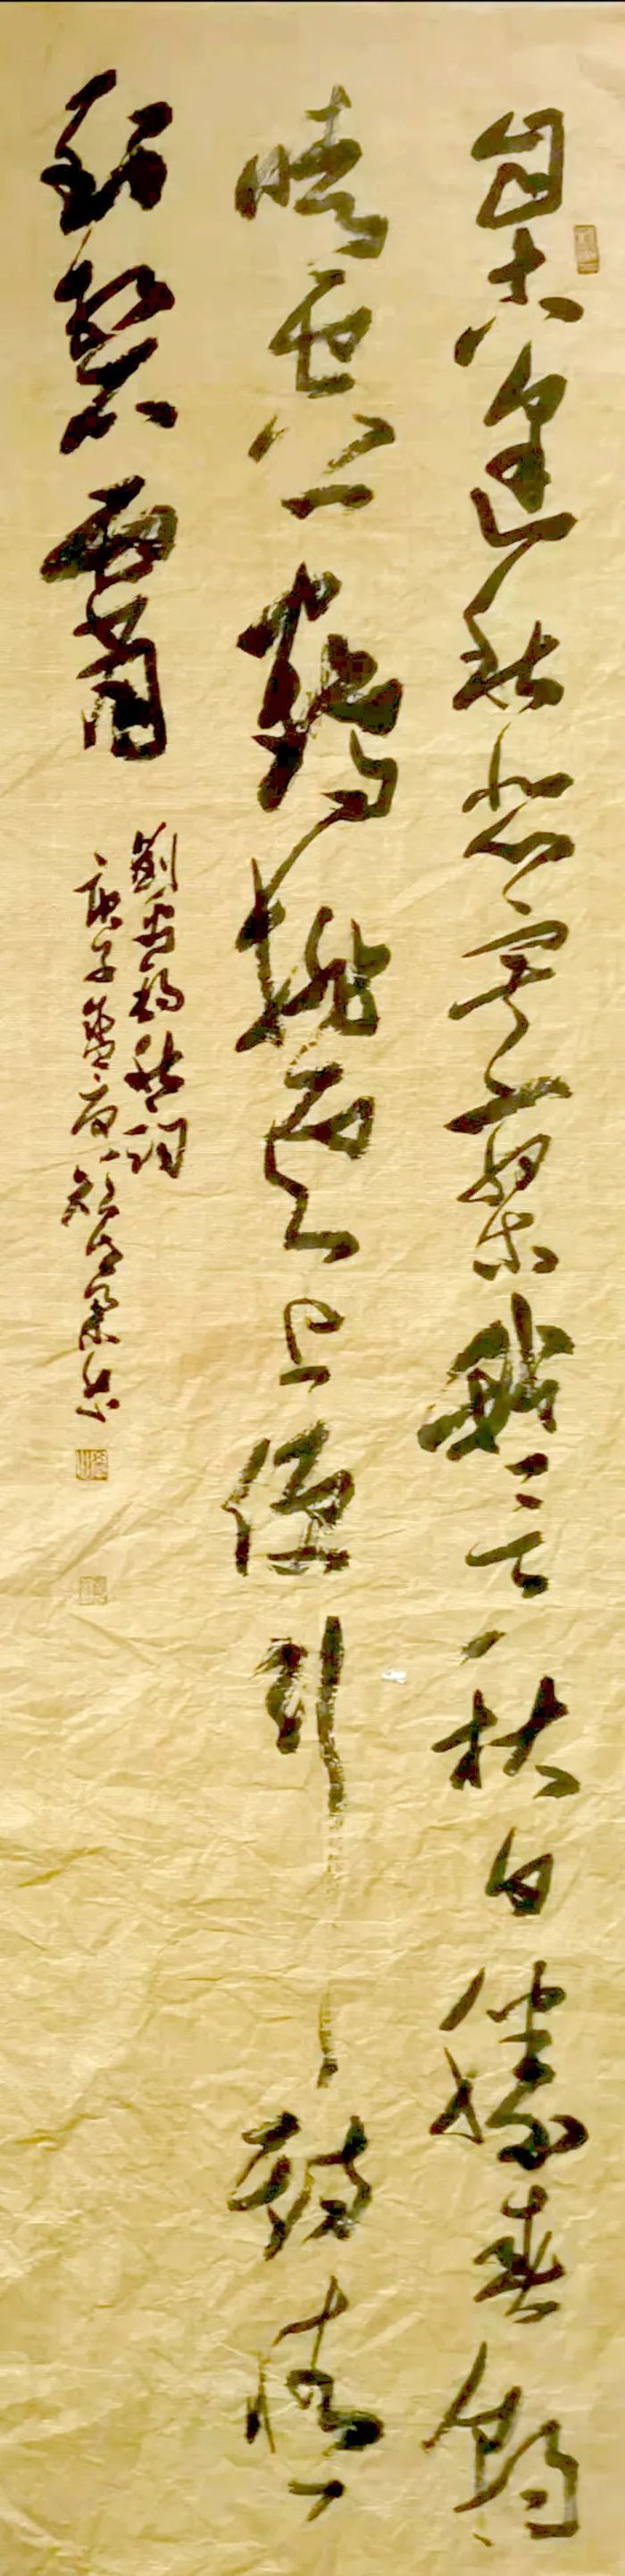 自古逢秋悲寂寥我言秋日勝春朝
晴空一鶴排雲上便引詩情
到碧霄
劉禹錫秋詞
庚子盛夏